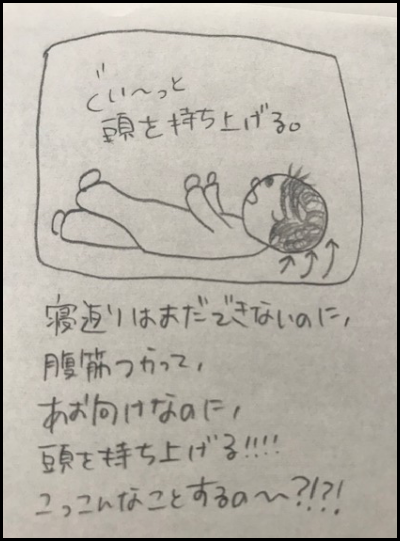 ぐい〜っと
頭を持ち上げる。
寝返りはまだできないのに、
腹筋つかって、
あお向けなのに、
頭を持ち上げる!!!!
こっこんなことするの〜?!?!